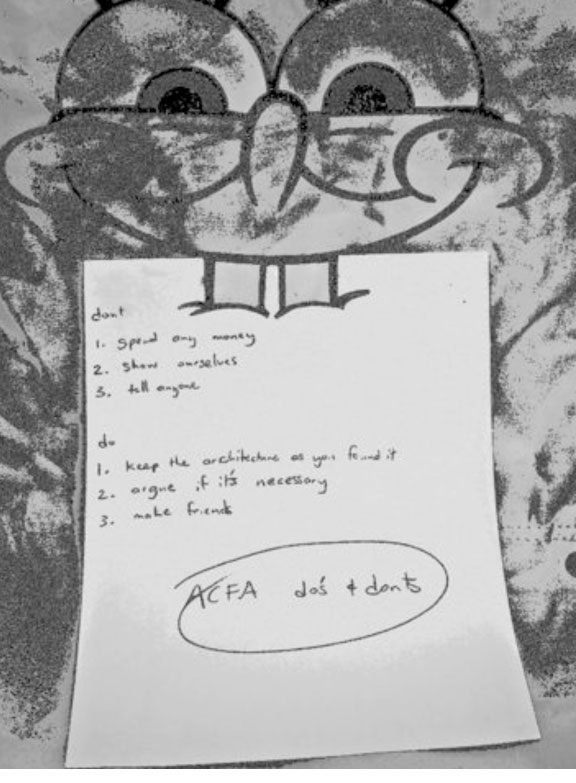 dont
1. spend any money
2. show ourselves
3. tell anyone
do
1. keep the architecture as you found it
2. argue if it's necessary
3. make friends
ACFA do's & donts